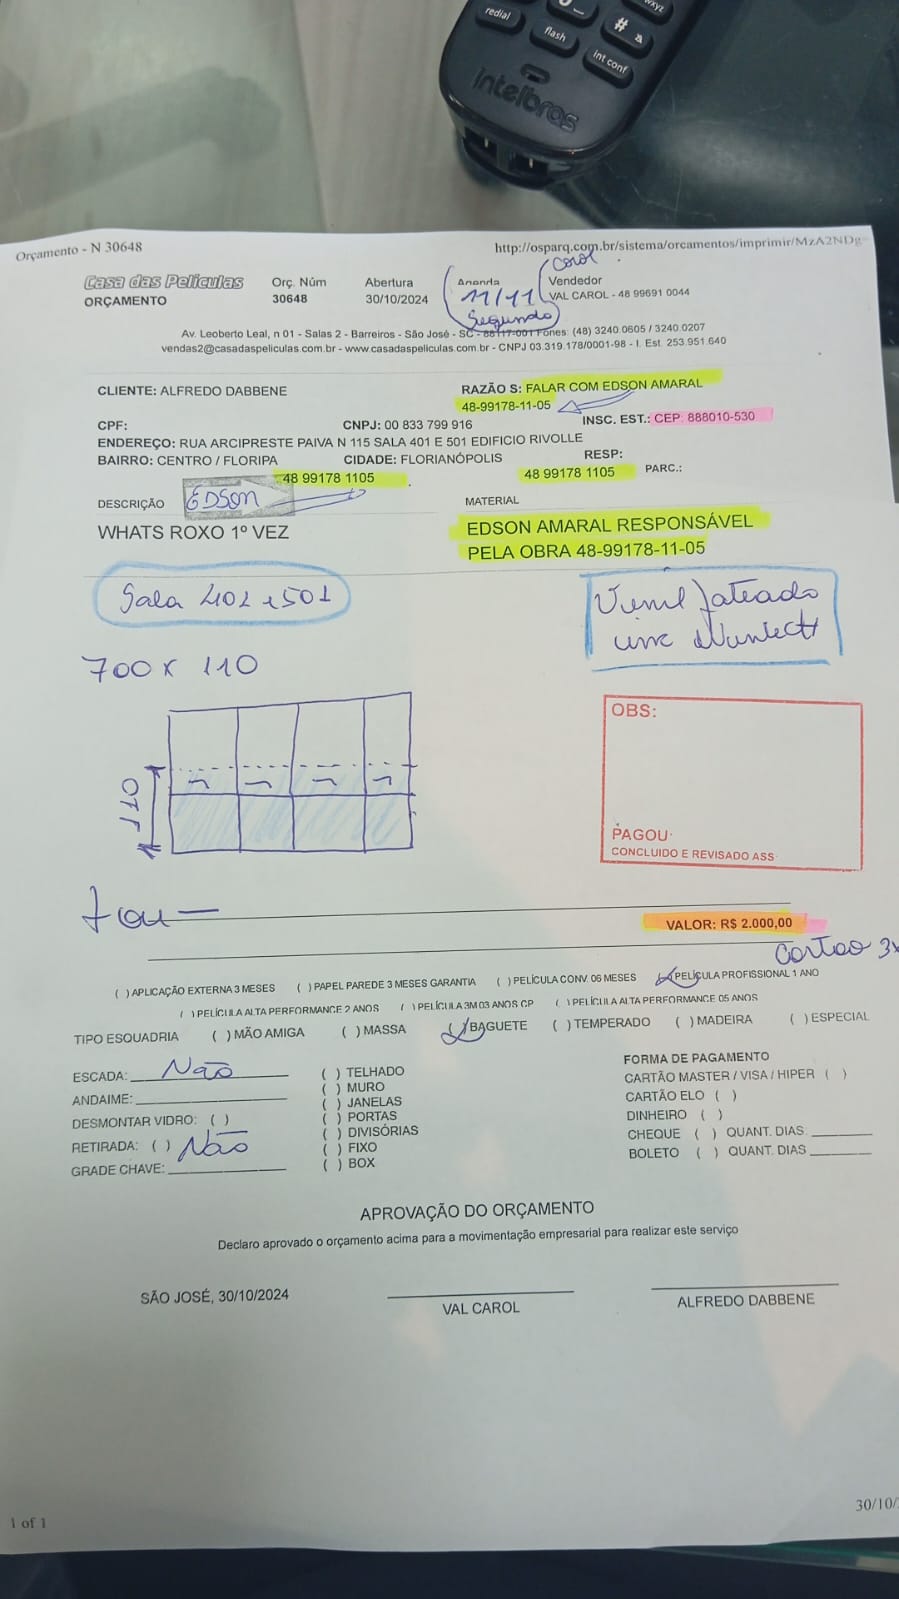 redial
flash
#
wxyz
int conf
intelbras
Orçamento - N 30648
http://osparq.com.br/sistema/orcamentos/imprimir/MzA2NDg=
Casa das Películas
ORÇAMENTO
Orç. Núm
30648
Abertura
30/10/2024
Agenda
11/11
Segunda
Carol
Vendedor
VAL CAROL - 48 99691 0044
Av. Leoberto Leal, n 01 - Salas 2 - Barreiros - São José - SC - 88117-001 Fones: (48) 3240.0605 / 3240.0207
vendas2@casadaspeliculas.com.br - www.casadaspeliculas.com.br - CNPJ 03.319.178/0001-98 - I. Est. 253.951.640
CLIENTE: ALFREDO DABBENE
RAZÃO S: FALAR COM EDSON AMARAL
48-99178-11-05
CPF:
CNPJ: 00 833 799 916
INSC. EST.: CEP: 888010-530
ENDEREÇO: RUA ARCIPRESTE PAIVA N 115 SALA 401 E 501 EDIFICIO RIVOLLE
BAIRRO: CENTRO / FLORIPA
CIDADE: FLORIANÓPOLIS
RESP:
48 99178 1105
48 99178 1105
PARC.:
DESCRIÇÃO
EDSON
MATERIAL
WHATS ROXO 1º VEZ
EDSON AMARAL RESPONSÁVEL
PELA OBRA 48-99178-11-05
Sala 401 e 501
Vinil Jateado
700 x 110
110
OBS:
PAGOU:
CONCLUIDO E REVISADO ASS:
VALOR: R$ 2.000,00
Cartão 3x
( ) APLICAÇÃO EXTERNA 3 MESES ( ) PAPEL PAREDE 3 MESES GARANTIA ( ) PELÍCULA CONV. 06 MESES ( ) PELÍCULA PROFISSIONAL 1 ANO
( ) PELÍCULA ALTA PERFORMANCE 2 ANOS ( ) PELÍCULA 3M 03 ANOS CP ( ) PELÍCULA ALTA PERFORMANCE 05 ANOS
TIPO ESQUADRIA ( ) MÃO AMIGA ( ) MASSA ( ) BAGUETE ( ) TEMPERADO ( ) MADEIRA ( ) ESPECIAL
ESCADA: Não
ANDAIME:
DESMONTAR VIDRO: ( )
RETIRADA: ( ) Não
GRADE CHAVE:
( ) TELHADO
( ) MURO
( ) JANELAS
( ) PORTAS
( ) DIVISÓRIAS
( ) FIXO
( ) BOX
FORMA DE PAGAMENTO
CARTÃO MASTER / VISA / HIPER ( )
CARTÃO ELO ( )
DINHEIRO ( )
CHEQUE ( ) QUANT. DIAS.
BOLETO ( ) QUANT. DIAS
APROVAÇÃO DO ORÇAMENTO
Declaro aprovado o orçamento acima para a movimentação empresarial para realizar este serviço
SÃO JOSÉ, 30/10/2024
VAL CAROL
ALFREDO DABBENE
1 of 1
30/10/